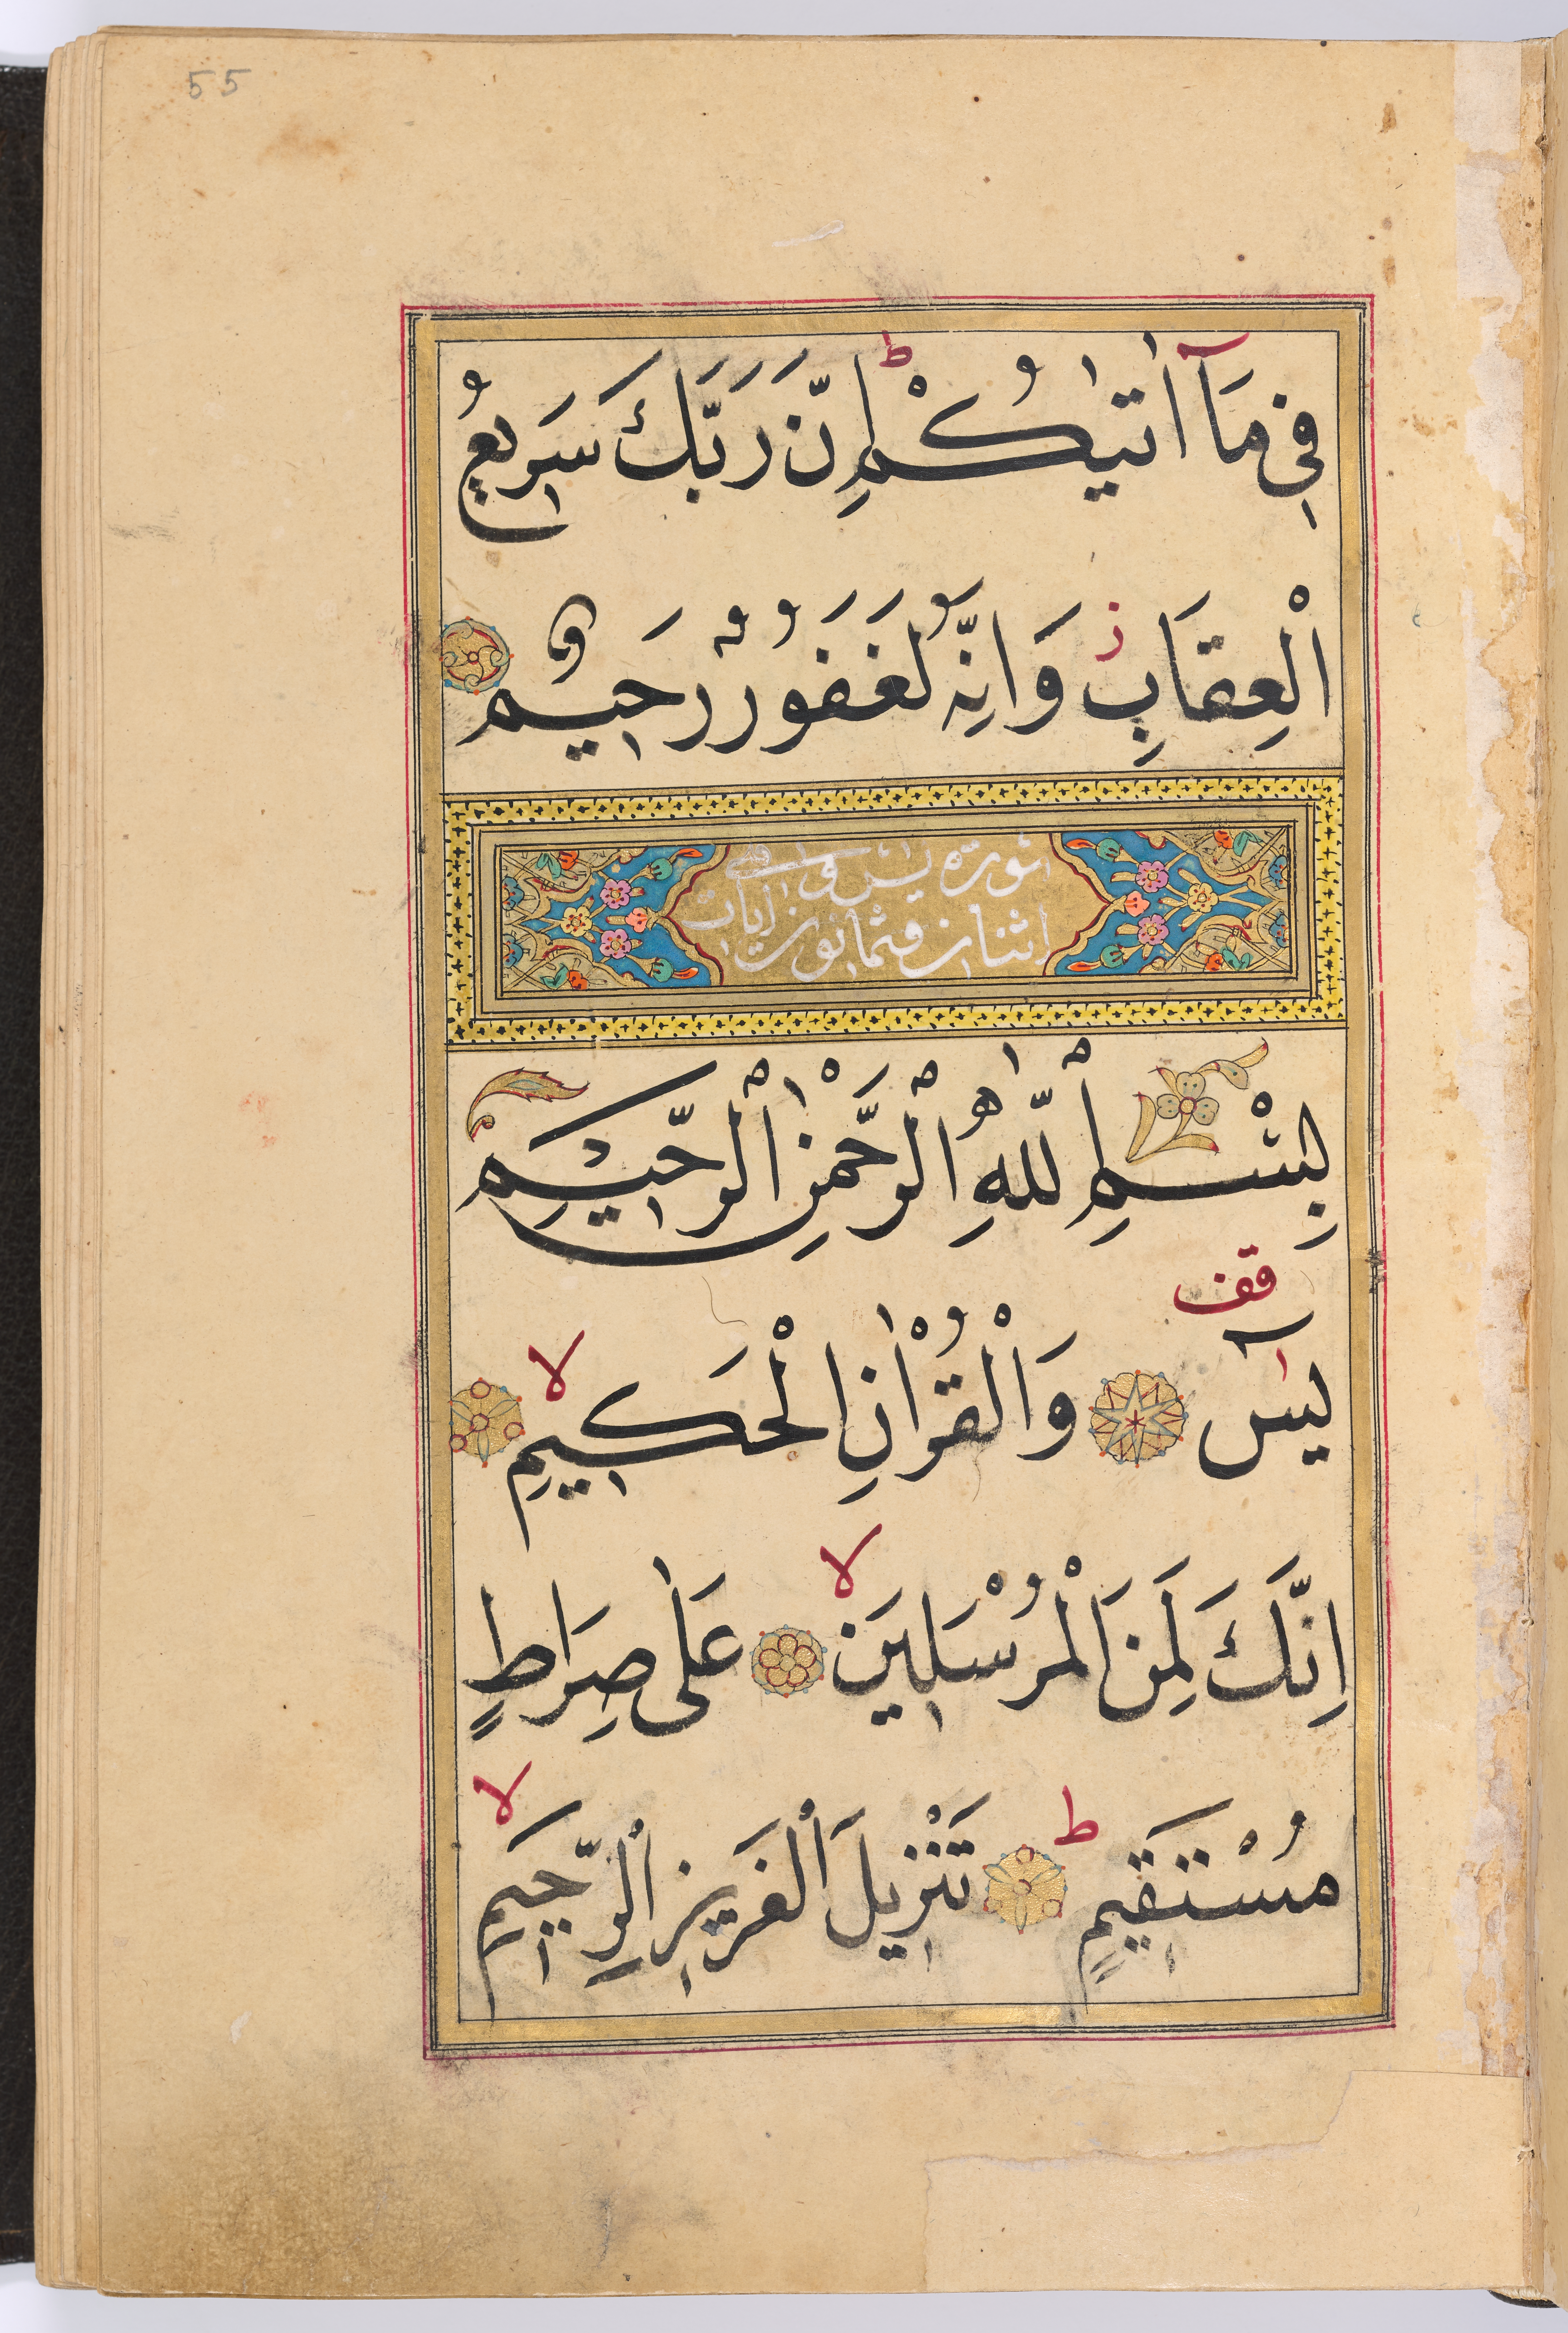 55
فِي مَآ اٰتٰيكُمْ ط اِنَّ رَبَّكَ سَرِيعُ
الْعِقَابِ ز وَاِنَّهُ لَغَفُورٌ رَحِيم
سورة يس وهى
اثنان وثمانون ايات
بِسْمِ اللّٰهِ الْرَّحْمٰنِ الْرَّحِيمِ
قف
يٰسٓ وَالْقُرْاٰنِ الْحَكِيمِ لا
اِنَّكَ لَمِنَ الْمُرْسَلِينَ لا عَلٰى صِرَاطٍ
مُسْتَقِيمٍ ط تَنْزِيلَ الْعَزِيزِ الرَّحِيمِ لا